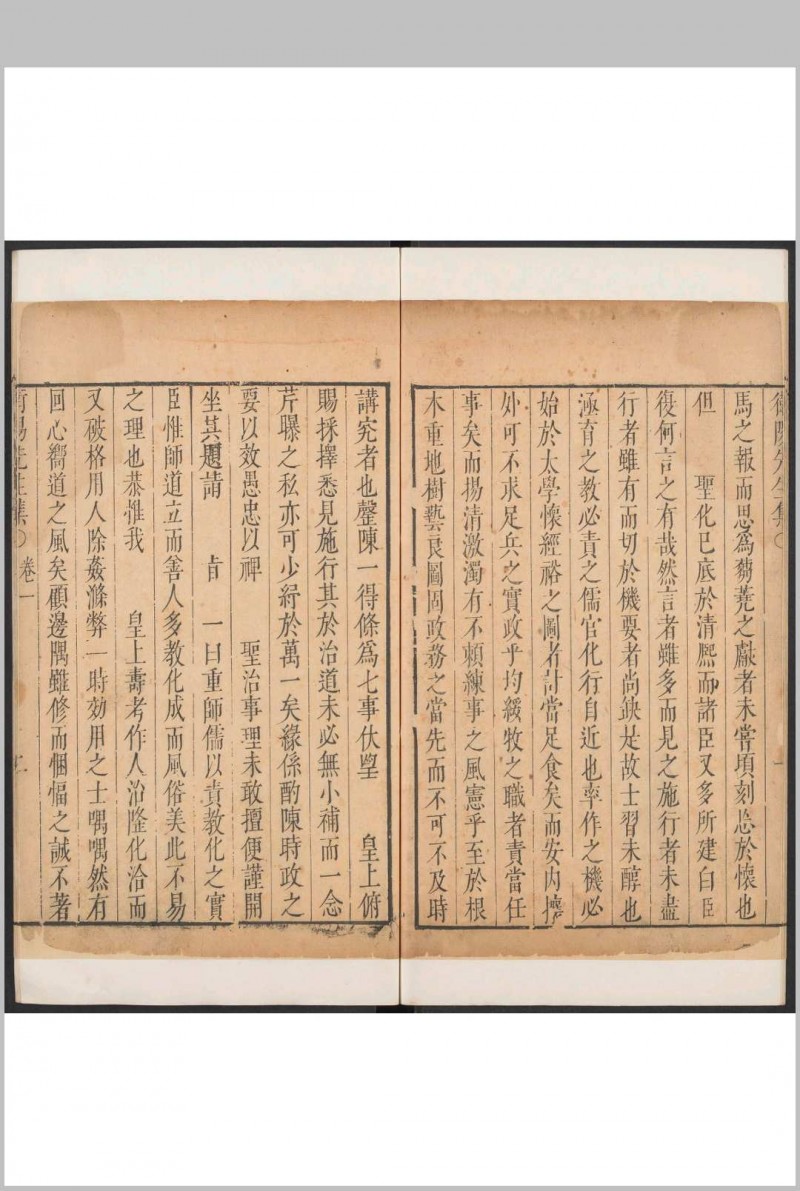 馬之報而思爲蒭蕘之獻者未嘗頃刻忘於懷也
但　聖化已底於清熈而諸臣又多所建白臣
復何言之有哉然言者雖多而見之施行者未盡
行者雖有而切於機要者尚缺是故士習未醇也
涵育之教必責之儒官化行自近也率作之機必
始於太學懷經裕之圖者計當足食矣而安内攘
外可不求足兵之實政乎均綏牧之職者責當任
事矣而揚清激濁有不頼練事之風憲乎至於根
木重地樹藝良圖固政務之當先而不可不及時
講究者也罄陳一得條爲七事伏望　皇上俯
賜採擇悉見施行其於治道未必無小補而一念
芹曝之私亦可少紓於萬一矣緣係酌陳時政之
要以效愚忠以禆　聖治事理未敢擅便謹開
坐其題請　旨　一曰重師儒以責教化之實
臣惟師道立而善人多教化成而風俗美此不易
之理也恭惟我　皇上壽考作人治隆化洽而
又破格用人除姦滌弊一時効用之士喁喁然有
回心嚮道之風矣顧邊隅雖修而悃愊之誠不著
先生集　卷一